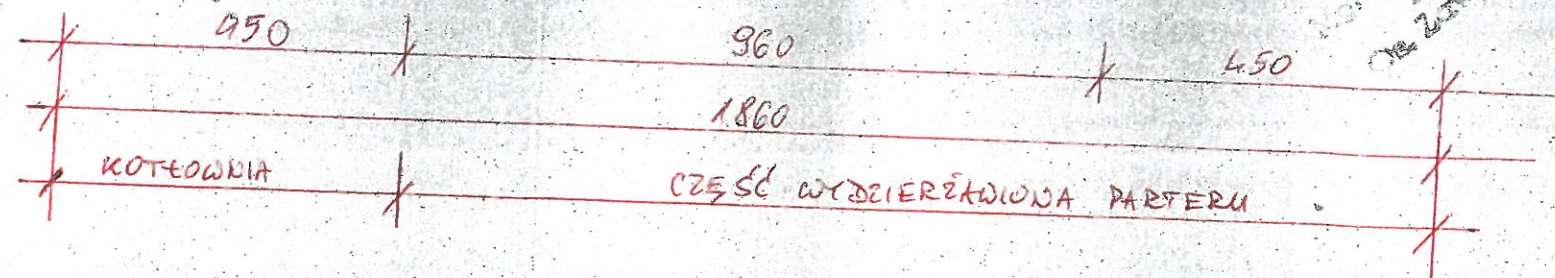 450 960 450
1860
KOTŁOWNIA CZĘŚĆ WYDZIERŻAWIONA PARTERU